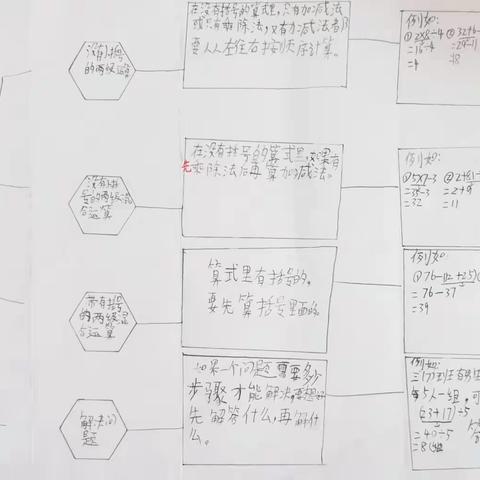 没有括号
的两级运算
在没有括号的算式里,只有加减法
或只有乘除法,又有加减法都
要从左往右按顺序计算。
例如:
①2×8÷4
=16÷4
=4
没有括
号的两级混
合运算
在没有括号的算式里,如果有
先乘除法后再算加减法。
例如:
①5×7-3
=35-3
=32
=2+9
=11
带有括号
的两级混
合运算
算式里有括号的,
要先算括号里面的
例如
①76-(12+25)
=76-37
=39
解决问
题
如果一个问题需要多少
步骤才能解决,要想好
先解答什么,再解什
么。
例如:
每5人一组,可
(23+17)÷5
=40÷5
=8(组